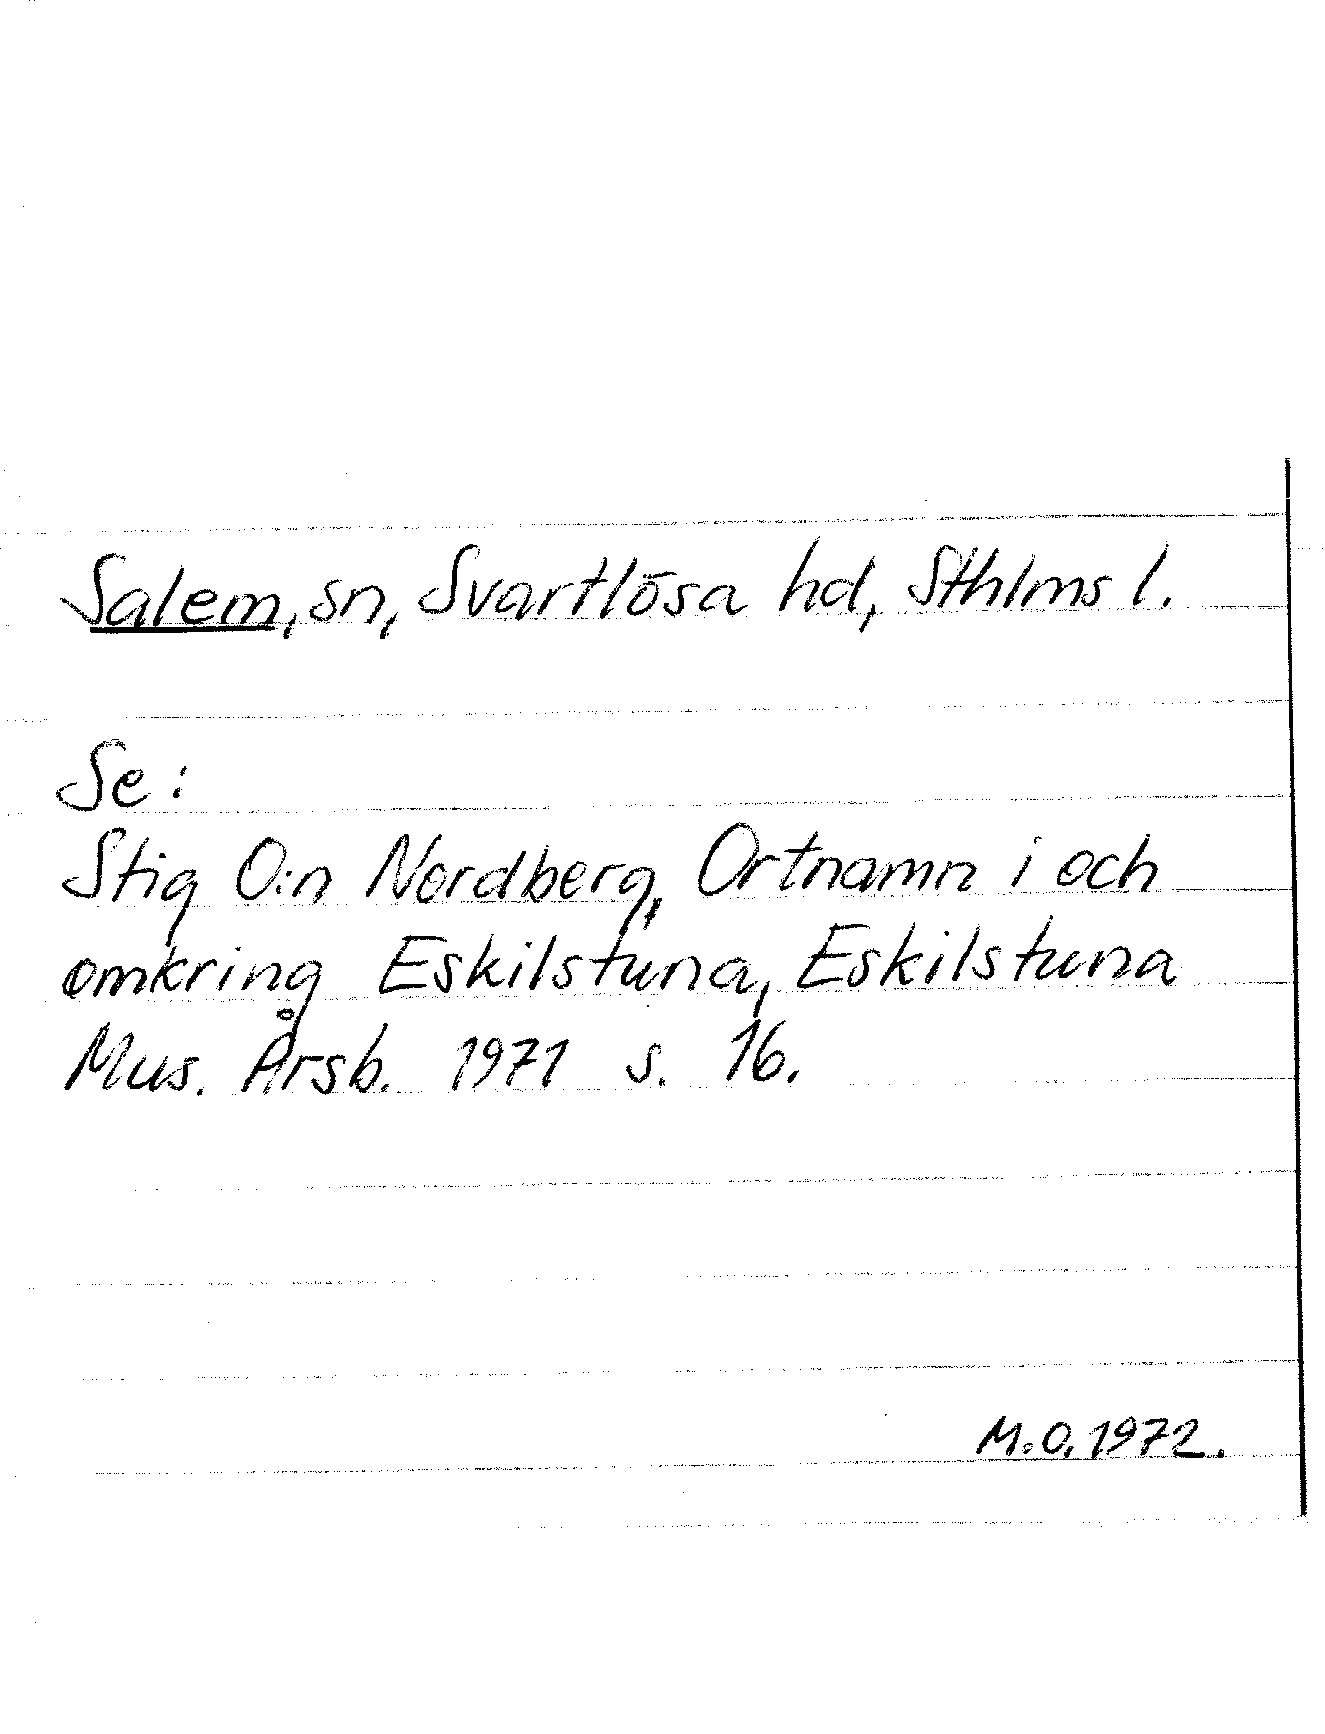 Salem, sn, Svartlösa hd, Sthlms l.
Se:
Stig O:n Nordberg, Ortnamn i och
omkring Eskilstuna, Eskilstuna
Mus. Årsb. 1971 s. 16.
M.O. 1972.